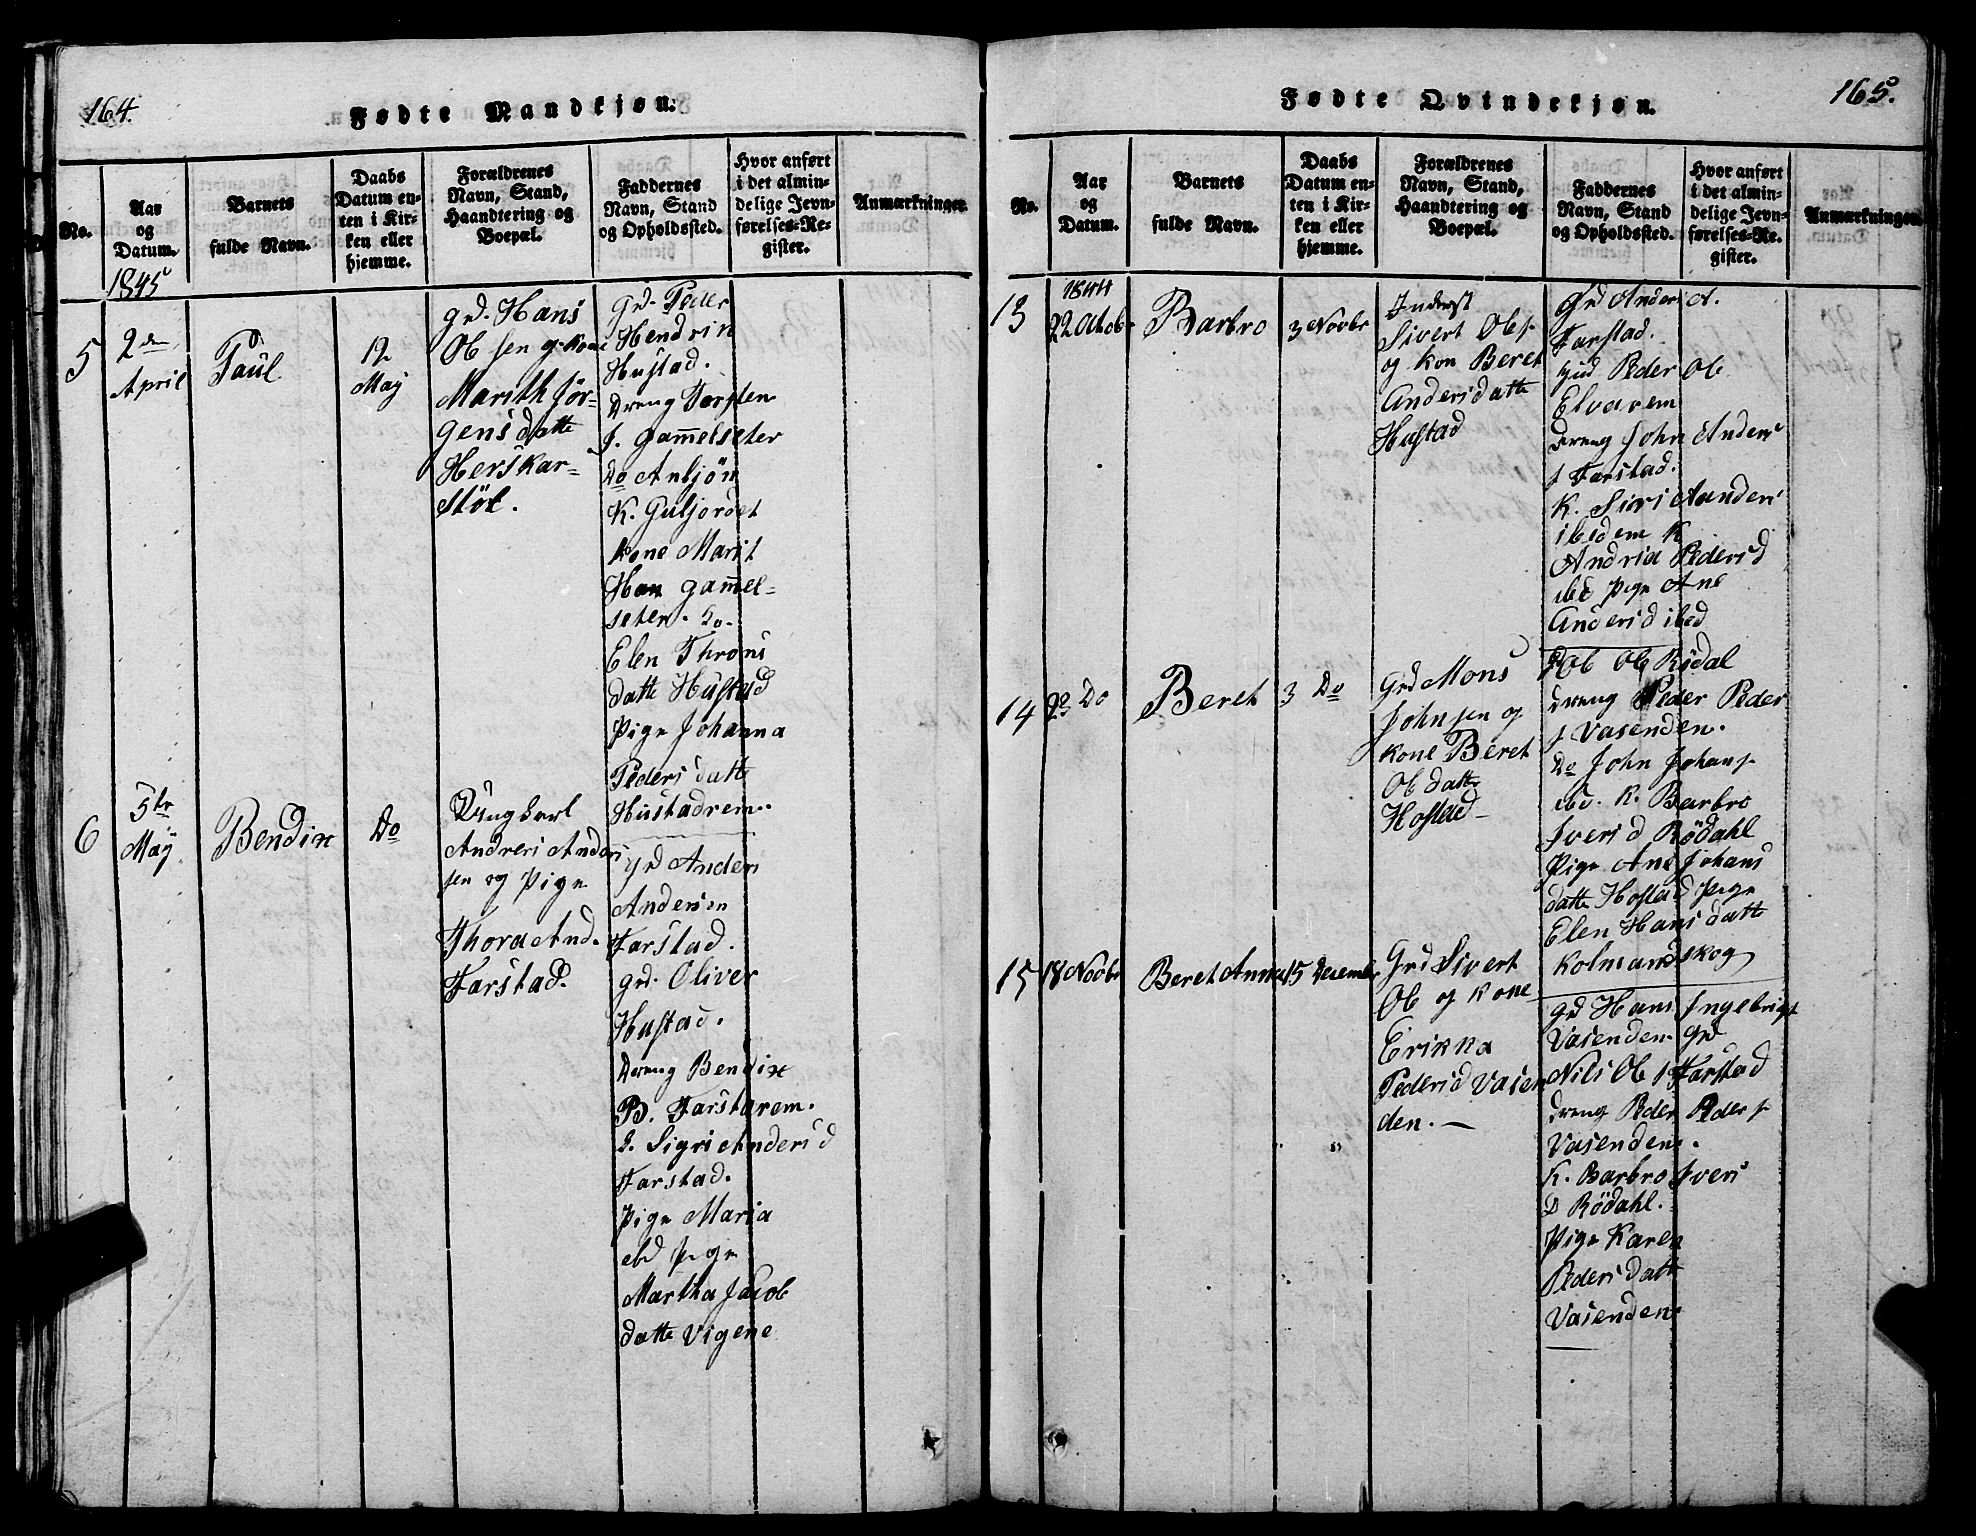 164.
Fødte Mandkjøn:
No.
Aar
og
Datum.
Barnets
fulde Navn.
Daabs
Datum en-
ten i Kir-
ken eller
hjemme.
Forældrenes
Navn, Stand,
Haandtering og
Boepæl.
Faddernes
Navn, Stand
og Opholdssted.
Hvor anført
i det almin-
delige Jevn-
førelses-Re-
gister.
Anmærkninger
1845
5
2den
April
Paul
12
May
grd. Hans
Ol sen g kone
Marith Jör-
gens datte
Herskar-
stöl.
Grd. Peder
Hendrin
Hustad.
Dreng Torsten
J. Gam̄elseter
Do
K. Guljordet
kone Marit
Han gam̄el-
seter. Do.
Elen Throns
datte Hustad
Pige Johanna
Peders datte
Hustadrem.
6
5te
May
Bendix
Do
Ungkarl
Andreas Anders
sen og Pige
Thora And.
Farstad.
grd Anders
Andersen
Farstad.
grd. Oliver
Hustad.
Dreng Bendix
B. Farstarem.
Sigri Anders d
Farstad.
Pige Maria
Pige
Martha Jacob
datte Vigene
165.
Fødte Qvindekjøn.
No.
Aar
og
Datum.
Barnets
fulde Navn.
Daabs
Datum en-
ten i Kir-
ken eller
hjemme.
Forældrenes
Navn, Stand,
Haandtering og
Boepæl.
Faddernes
Navn, Stand
og Opholdssted.
Hvor anført
i det almin-
delige Jevn-
førelses-Re-
gister.
Anmærkninger
1844
13
22 Octob
Barbro
3 Novbr
Inderst
Sivert Ol s
og kon Beret
Anders datte
Hustad
Grd Anders A.
Farstad.
Peder Ol
Elvarem
Dreng John Anders
s Farstad.
K. Siri Anders
ibidem K
Andrea Peders d
ibd Pige Ane
Anders d ibed
14
Do
Beret
3 Do
Grd Mons
Johnsen og
kone Beret
Ol datte
Hostad
Ol Ol Rödal
Dreng Peder Peder
s Vasenden.
Do John Johans
ibd. K. Barbro
Ivers d Rödahl
Pige Ane Johans
datte Hostad Pige
Elen Hans datte
Kolmandskog
15
18 Novbr
Beret Anna
15 Desember
Grd Sivert
Ol og kone
Erikka
Peders d Vasen
den.
Grd Hans Ingebrigt
Vasenden Grd
Nils Ol s Farstad
Dreng Peder Peder s
Vasenden.
K. Barbro Ivers
D Rödahl.
Pige Karen
Peders datte
Vasenden